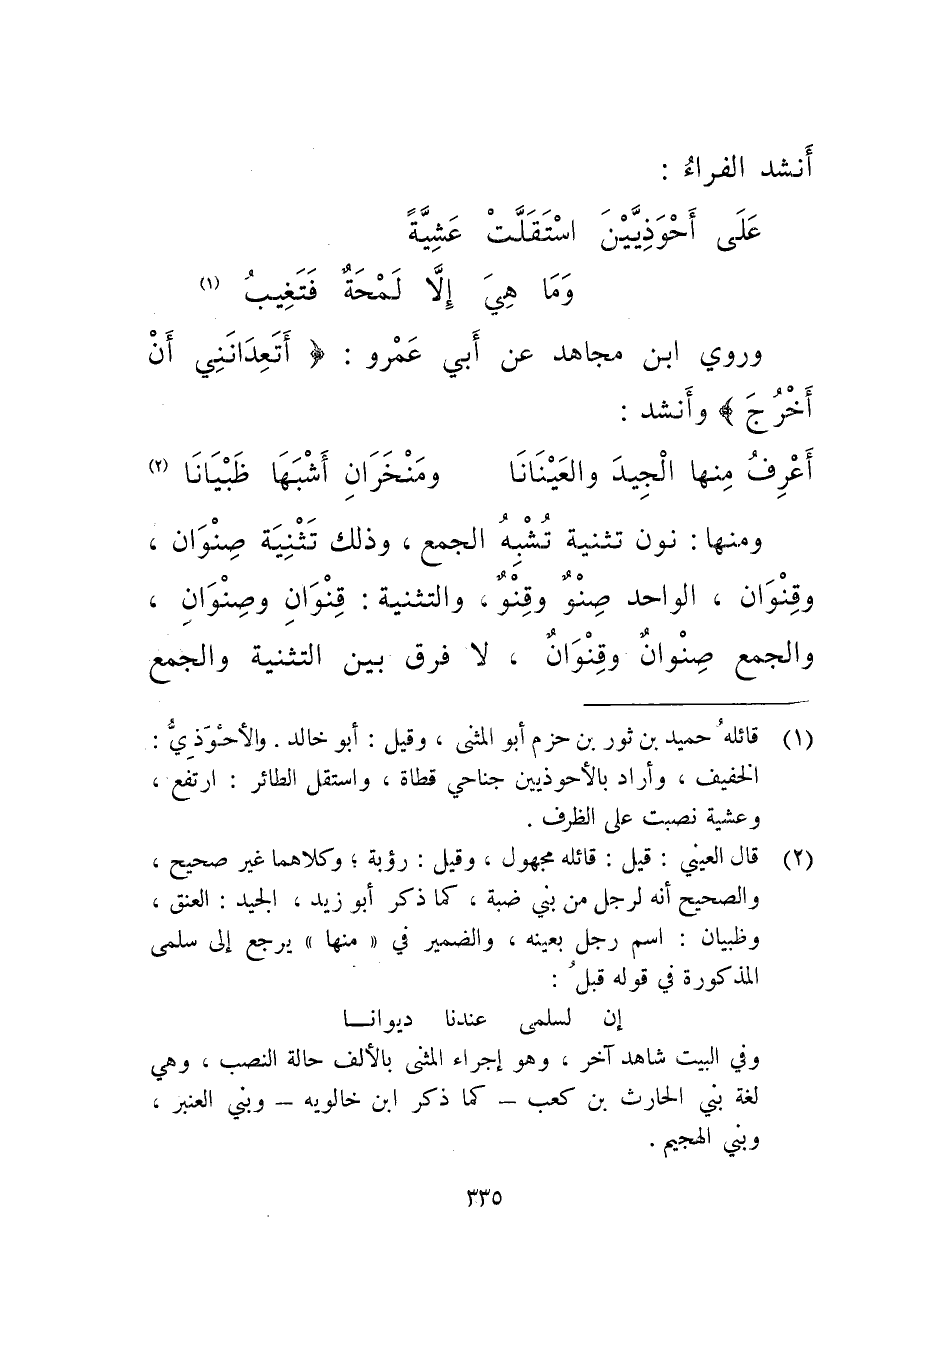 أَنشد الفراءُ :
عَلَى أَحْوَذِيَّيْنَ اسْتَقَلَّتْ عَشِيَّةً
وَمَا هِيَ إِلَّا لَمْحَةٌ فَتَغِيبُ (١)
وروي ابن مجاهد عن أَبي عَمْرو : ﴿ أَتَعِدَانَنِي أَنْ
أَخْرُجَ ﴾ وأَنشد :
أَعْرِفُ مِنها الْجِيدَ والعَيْنَانَا ومَنْخَرَانِ أَشْبَهَا ظَبْيَانَا (٢)
ومنها : نون تثنية تُشْبِهُ الجمع ، وذلك تَثْنِيَة صِنْوَان ،
وقِنْوَان ، الواحد صِنْوٌ وقِنْوٌ ، والتثنية : قِنْوَانِ وصِنْوَانِ ،
والجمع صِنْوانٌ وقِنْوَانٌ ، لا فرق بين التثنية والجمع
(١) قائلهُ حميد بن ثور بن حزم أبو المثنى ، وقيل : أبو خالد . والأحْوَذِيُّ :
الخفيف ، وأراد بالأحوذيين جناحي قطاة ، واستقل الطائر : ارتفع ،
وعشية نصبت على الظرف .
(٢) قال العيني : قيل : قائله مجهول ، وقيل : رؤبة ؛ وكلاهما غير صحيح ،
والصحيح أنه لرجل من بني ضبة ، كما ذكر أبو زيد ، الجيد : العنق ،
وظبيان : اسم رجل بعينه ، والضمير في « منها » يرجع إلى سلمى
المذكورة في قوله قبلُ :
إن لسلمى عندنا ديوانــا
وفي البيت شاهد آخر ، وهو إجراء المثنى بالألف حالة النصب ، وهي
لغة بني الحارث بن كعب – كما ذكر ابن خالويه – وبني العنبر ،
وبني الهجيم .
٣٣٥